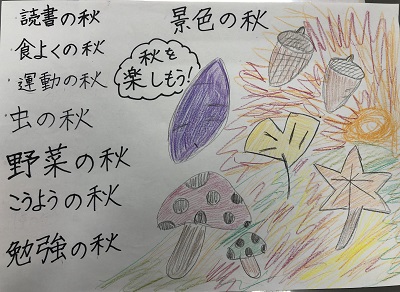 読書の秋
食よくの秋
運動の秋
虫の秋
野菜の秋
こうようの秋
勉強の秋
景色の秋
秋を
楽しもう!